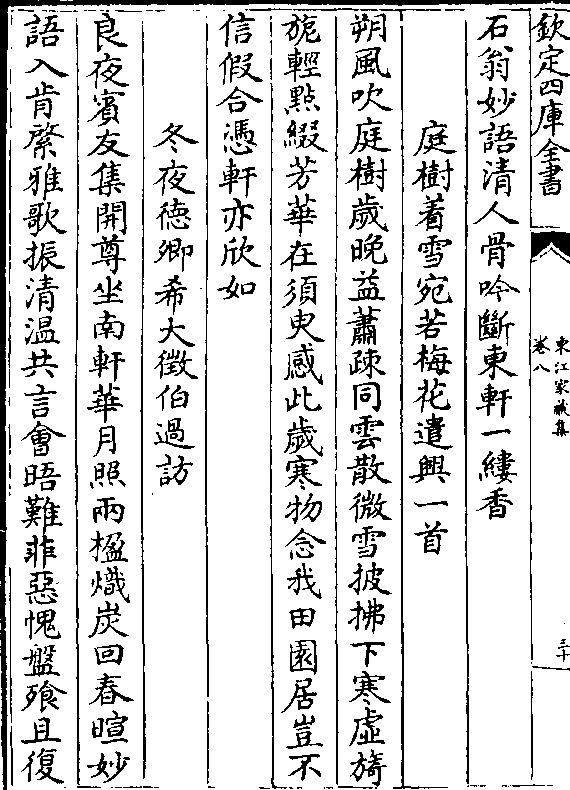 欽定四庫全書
東江家藏集
卷八
三十
石翁妙語清人骨吟斷東軒一縷香
庭樹着雪宛若梅花遣興一首
朔風吹庭樹歲晚益蕭疎同雲散微雪披拂下寒虛旖
旎輕點綴芳華在須臾感此歲寒物念我田園居豈不
信假合憑軒亦欣如
冬夜德卿希大徵伯過訪
良夜賓友集開尊坐南軒華月照兩楹熾炭回春暄妙
語入肯綮雅歌振清溫共言會晤難菲惡愧盤飧且復